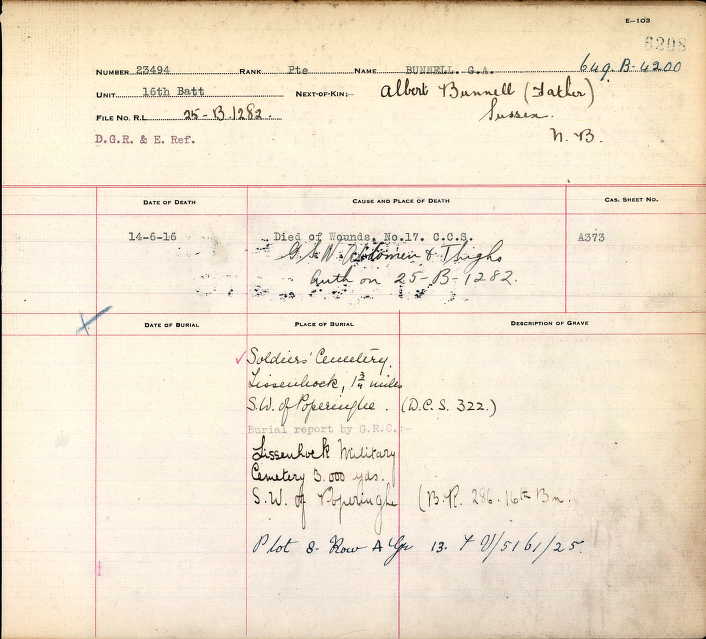 E-103
6208
NUMBER 23494 RANK Pte NAME BUNNELL. G.A. 649. B-4200
UNIT 16th Batt NEXT-OF-KIN:- Albert Bunnell (Father)
FILE NO. R.L. 25-B.1282. Sussex.
D.G.R. & E. Ref. N.B.
DATE OF DEATH CAUSE AND PLACE OF DEATH CAS. SHEET NO.
14-6-16 Died of Wounds. No.17. C.C.S. A373
G.S.W. Abdomen & Thighs
Auth on 25-B-1282.
DATE OF BURIAL PLACE OF BURIAL DESCRIPTION OF GRAVE
Soldiers' Cemetery,
Lissenhock, 1 3/4 miles
S.W. of Poperinghe. (D.C.S. 322.)
Burial report by G.R.C.:-
Lissenhoek Military
Cemetery 3.000 yds.
S.W. of Poperinghe (B.R. 286. 16th Bn.
Plot 8. Row A Gr 13. V/5161/25.